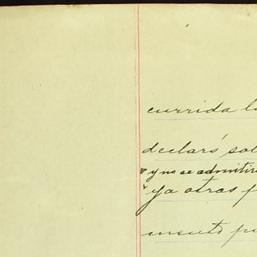 currida l
declaró sol
y no se admitir
ya otras f